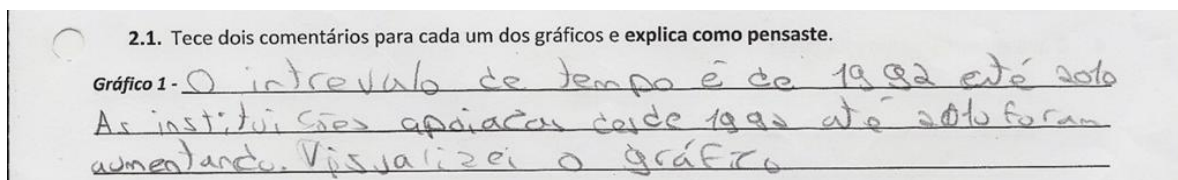 2.1. Tece dois comentários para cada um dos gráficos e explica como pensaste.
Gráfico 1 - O intrevalo de tempo é de 1992 até 2010
As instituições apoiadas desde 1992 até 2010 foram
aumentando. Visualizei o gráfico